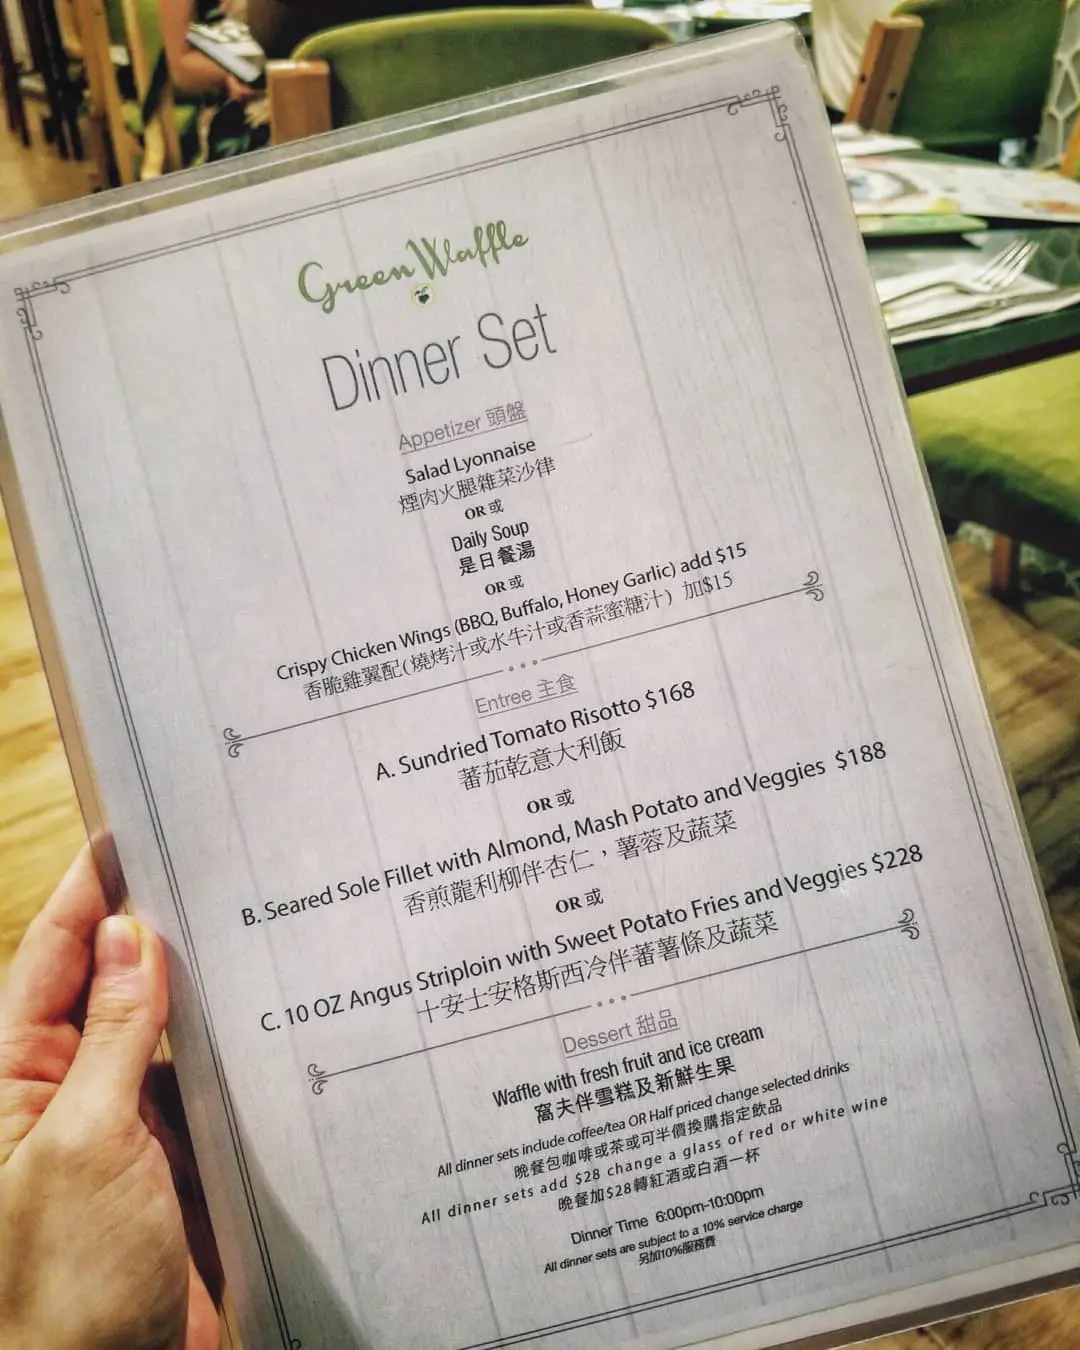 Green Waffle
Dinner Set
Appetizer 頭盤
Salad Lyonnaise
煙肉火腿雜菜沙律
OR 或
Daily Soup
是日餐湯
OR 或
Crispy Chicken Wings (BBQ, Buffalo, Honey Garlic) add $15
香脆雞翼配(燒烤汁或水牛汁或香蒜蜜糖汁) 加$15
Entree 主食
A. Sundried Tomato Risotto $168
蕃茄乾意大利飯
OR 或
B. Seared Sole Fillet with Almond, Mash Potato and Veggies $188
香煎龍利柳伴杏仁，薯蓉及蔬菜
OR 或
C. 10 OZ Angus Striploin with Sweet Potato Fries and Veggies $228
十安士安格斯西冷伴蕃薯條及蔬菜
Dessert 甜品
Waffle with fresh fruit and ice cream
窩夫伴雪糕及新鮮生果
All dinner sets include coffee/tea OR Half priced change selected drinks
晚餐包咖啡或茶或可半價換購指定飲品
All dinner sets add $28 change a glass of red or white wine
晚餐加$28轉紅酒或白酒一杯
Dinner Time 6:00pm-10:00pm
All dinner sets are subject to a 10% service charge
另加10%服務費